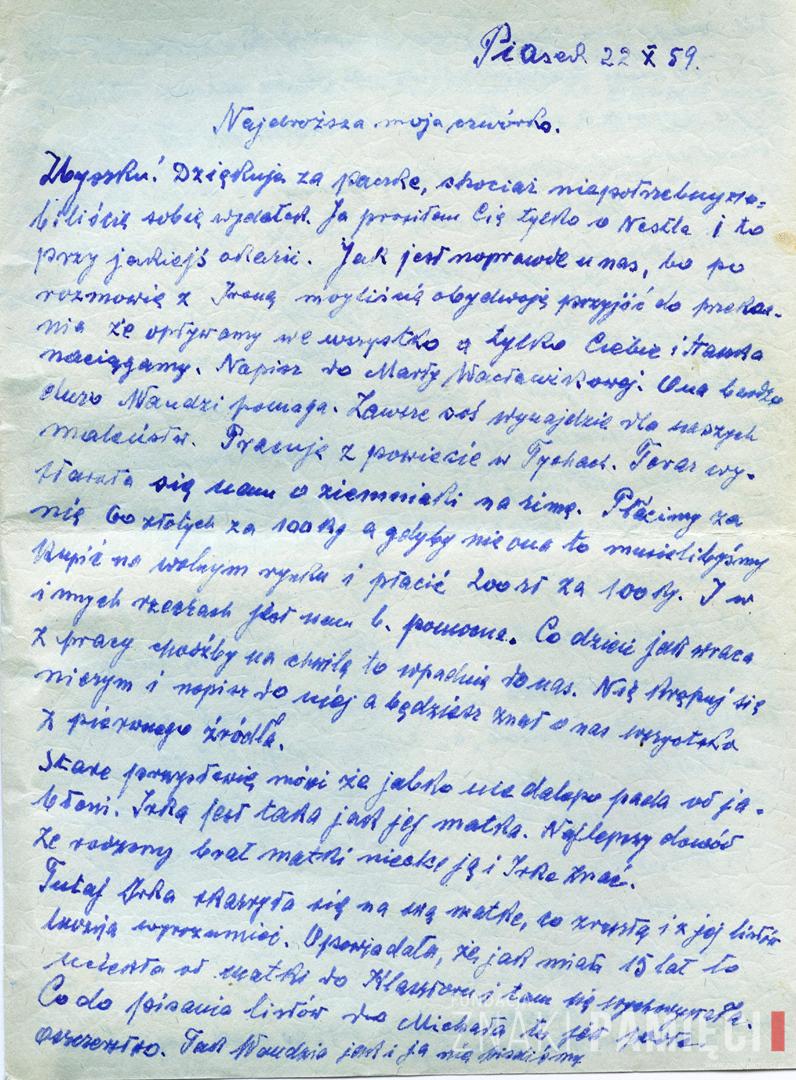 Piasek 22 X 59.
Najdroższa moja czwórko.
Zbyszku! Dziękuję za paczkę, chociaż niepotrzebny zro-
biliście sobie wydatek. Ja prosiłam Cię tylko o Nestle i to
przy jakiejś okazii. Jak jest naprawdę u nas, bo po
rozmowie z Ireną mogliście obydwoje przyjść do przekona-
nia że opływamy we wszystko a tylko Ciebie i Franka
naciągamy. Napisz do Marty Wacławikowej. Ona bardzo
dużo Wandzi pomaga. Zawsze coś wynajdzie dla naszych
maleństw. Pracuje z powiecie w Tychach. Teraz wy-
starała się nam o ziemniaki na zimę. Płacimy za
nie 60 złotych za 100 kg a gdyby nie ona to musielibyśmy
kupić na wolnym rynku i płacić 200 zł za 100 kg. I w
innych rzeczach jest nam b. pomocna. Co dzień jak wraca
z pracy choćby na chwilę to wpadnie do nas. Nie krępuj się
niczym i napisz do niej a będziesz znał o nas wszystko
z pierwszego źródła.
Stare przysłowie mówi że jabko nie daleko pada od ja-
błoni. Irka jest taka jak jej matka. Najlepszy dowód
że rodzony brat matki nie chce ją i Irkę znać.
Tutaj Irka skarżyła się na swą matkę, co zresztą i z jej listów
można wyrozumieć. Opowiadała, że jak miała 15 lat to
uciekła od matki do Klasztoru i tam się wychowywała.
Co do pisania listów do Michała to jest
oszczerstwo. Tak Wandzia jak i ja nie
FUNDACJA
ZNAKI PAMIĘCI